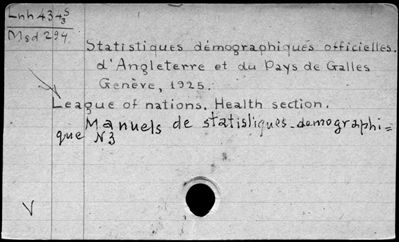 Lnh 434 S/3
Msd 294
Statistiques démographiques officielles.
d'Angleterre et du Pays de Galles
Genève, 1925.
League of nations. Health section.
Manuels de statisliques-demographi=
que N3
V